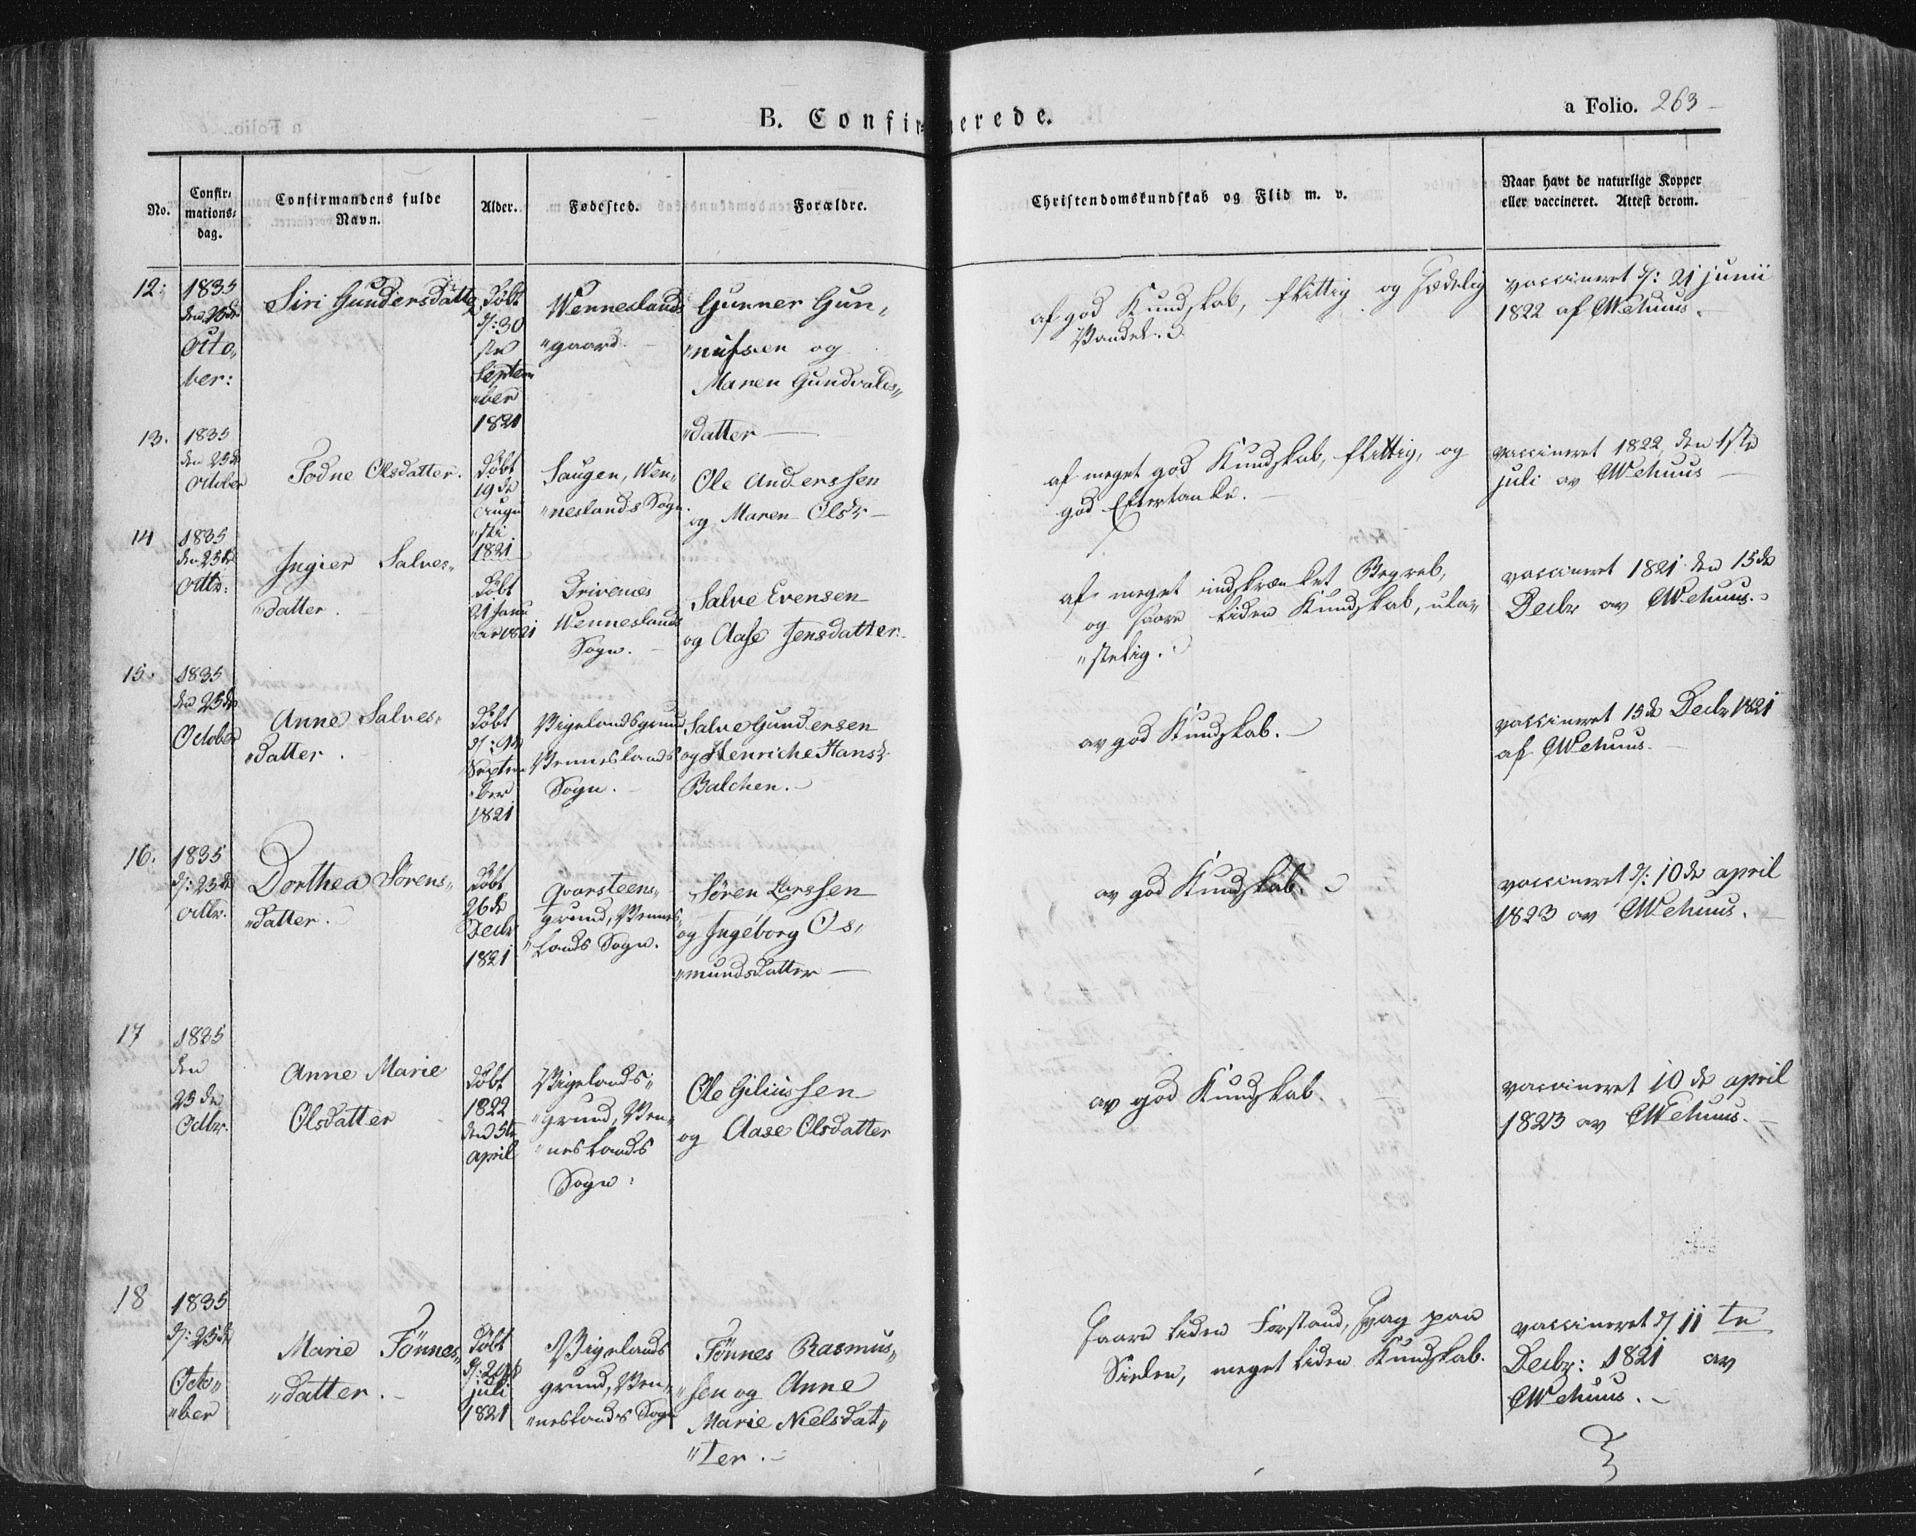 B. Confirmerede.
a Folio. 263
No.
Confir-
mations-
dag.
Confirmandens fulde
Navn.
Alder.
Fødested.
Forældre.
Christendomskundskab og Flid m. v.
Naar havt de naturlige Kopper
eller vaccineret. Attest derom.
12:
1835
den 25de
Octo„
ber:
Siri Gundersdatter
døbt
d/: 30
ste
Septem
„ber
1821
Wenneslands
„gaard.
Gunner Gun„
„nufsen og
Maren Gundvalds„
„datter —
af god Kundskab, flittig og sædelig
Vandel.
vaccineret d/: 21 junii
1822 af CWehuus.
13.
1835
den 25de
October
Todne Olsdatter.
døbt
19de
Augu
„sti
1821
Saugen, Wen„
„neslands Sogn.
Ole Anderssen
og Maren Olsdr —
af meget god Kundskab, flittig, og
god Eftertanke.
vaccineret 1822, den 1ste
juli av CWehuus
14
1835
den 25de
Octbr:
Ingier Salves„
„datter.
døbt
21 Janu
ar 1821
Drivenes
Wenneslands
Sogn.
Salve Evensen
og Aase Jensdatter.
af meget indskrænket Begreb,
og saare liden Kundskab, ula„
„stelig.
vaccineret 1821 den 15de
Decbr av CWehuus.
15.
1835
den 25de
October
Anne Salves„
„datter.
døbt
d/: 9de
Septem
„ber
1821
Vigelandsgrund
Venneslands
Sogn.
Salve Gundersen
og Henriche Hansdr
Balchen.
av god Kundskab.
vaccineret 15de Decbr 1821
af CWehuus.
16.
1835
d/: 25de
Octbr.
Dorthea Sørens„
„datter.
døbt
26de
Decbr
1821
Qvarsteens„
grund, Vennes„
„lands Sogn.
Søren Larssen
og Ingeborg Os„
„mundsdatter —
av god Kundskab.
vaccineret d/: 10de april
1823 av CWehuus.
17
1835
den
25de
Octbr.
Anne Marie
Olsdatter
døbt
1822
den 5te
april
Vigelands„
„grund, Ven„
„neslands
Sogn.
Ole Giliussen
og Aase Olsdatter
av god Kundskab.
vaccineret 10de april
1823 av CWehuus.
18
1835
d/: 25de
Octo„
„ber
Marie Fönnes„
„datter.
døbt
juli
1821
Vigelands
grund, Ven„
„neslands Sogn
Fönnes Rasmus„
„sen og Anne
Marie Nielsdat„
„ter.
saare liden Forstand, svag paa
Sielen, meget liden Kundskab.
vaccineret d/ 11te
Decbr: 1821 av
CWehuus.